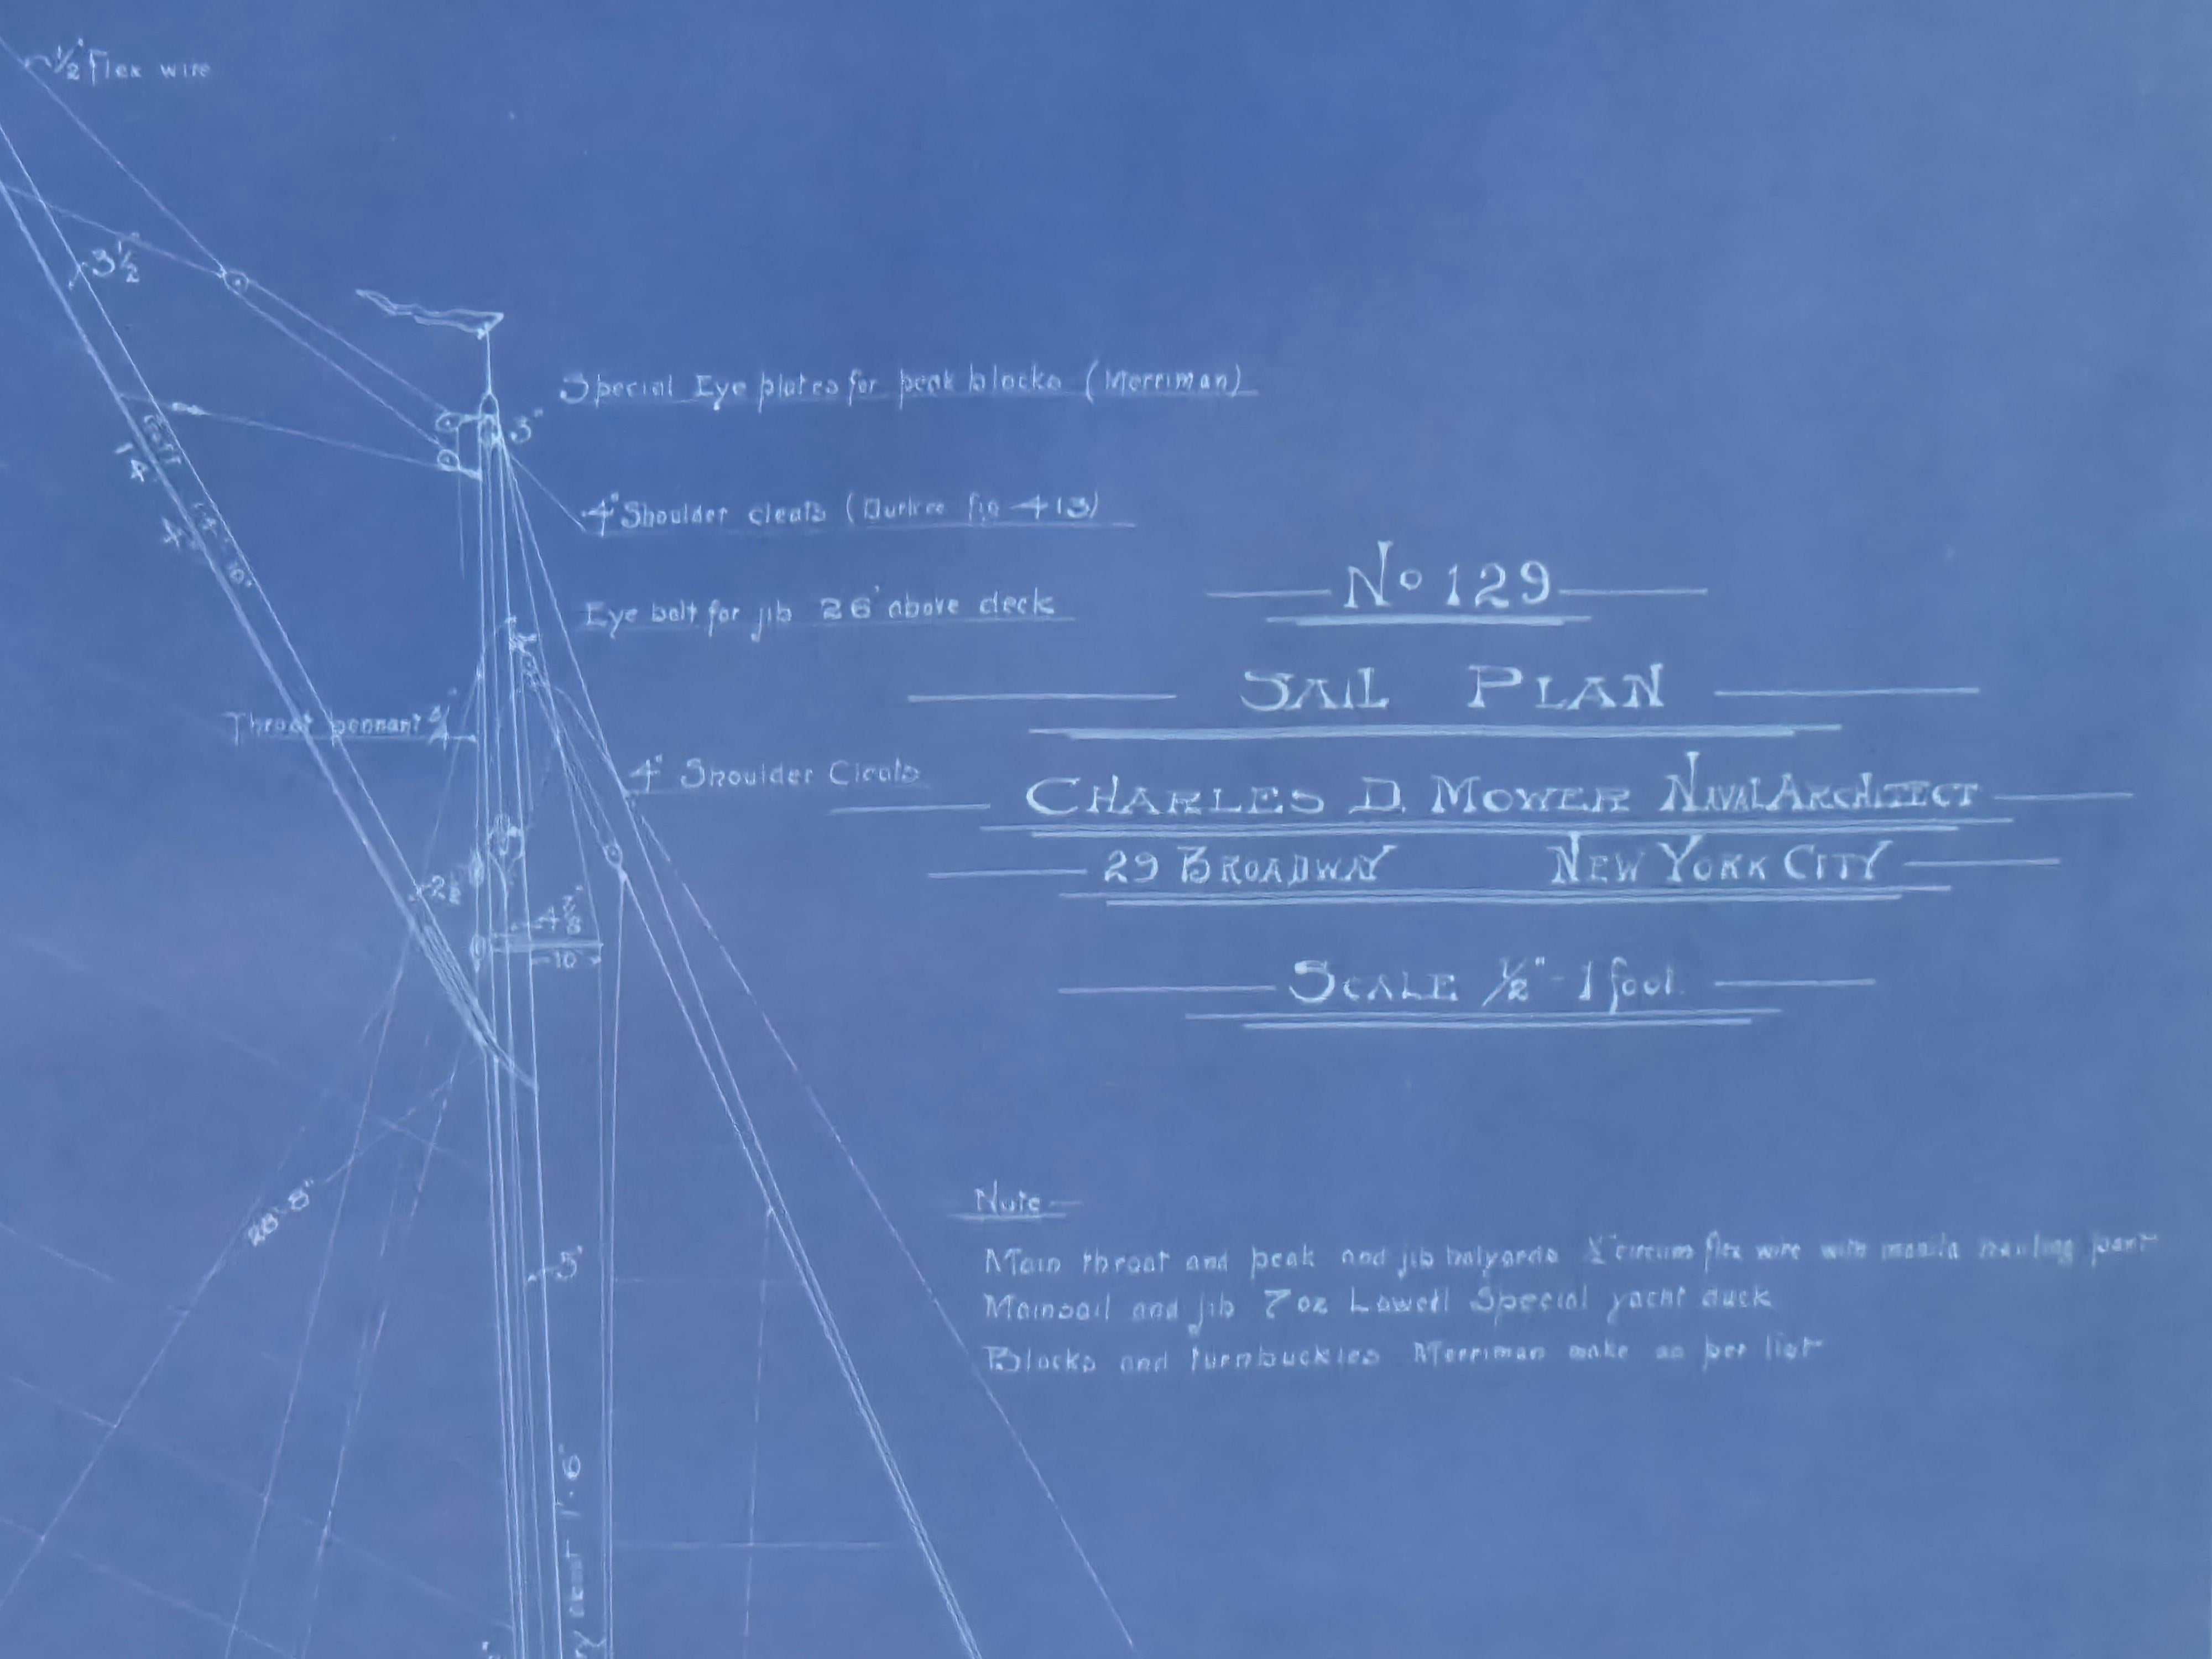 ½" Flex wire
3½
Special Eye plates for peak blocks (Merriman)
3"
Gaff
4" Shoulder cleats (Durkee fig 413)
Eye bolt for jib 26' above deck
Throat pennant
4" Shoulder Cleats
2½
4⅞"
10"
28'-8"
5"
1'-6"
No 129
SAIL PLAN
CHARLES D. MOWER NAVAL ARCHITECT
29 BROADWAY NEW YORK CITY
SCALE ½" - 1 foot.
Note —
Main throat and peak and jib halyards circum flex wire with manila hauling part
Mainsail and jib 7 oz Lowell Special yacht duck
Blocks and turnbuckles Merriman make as per list